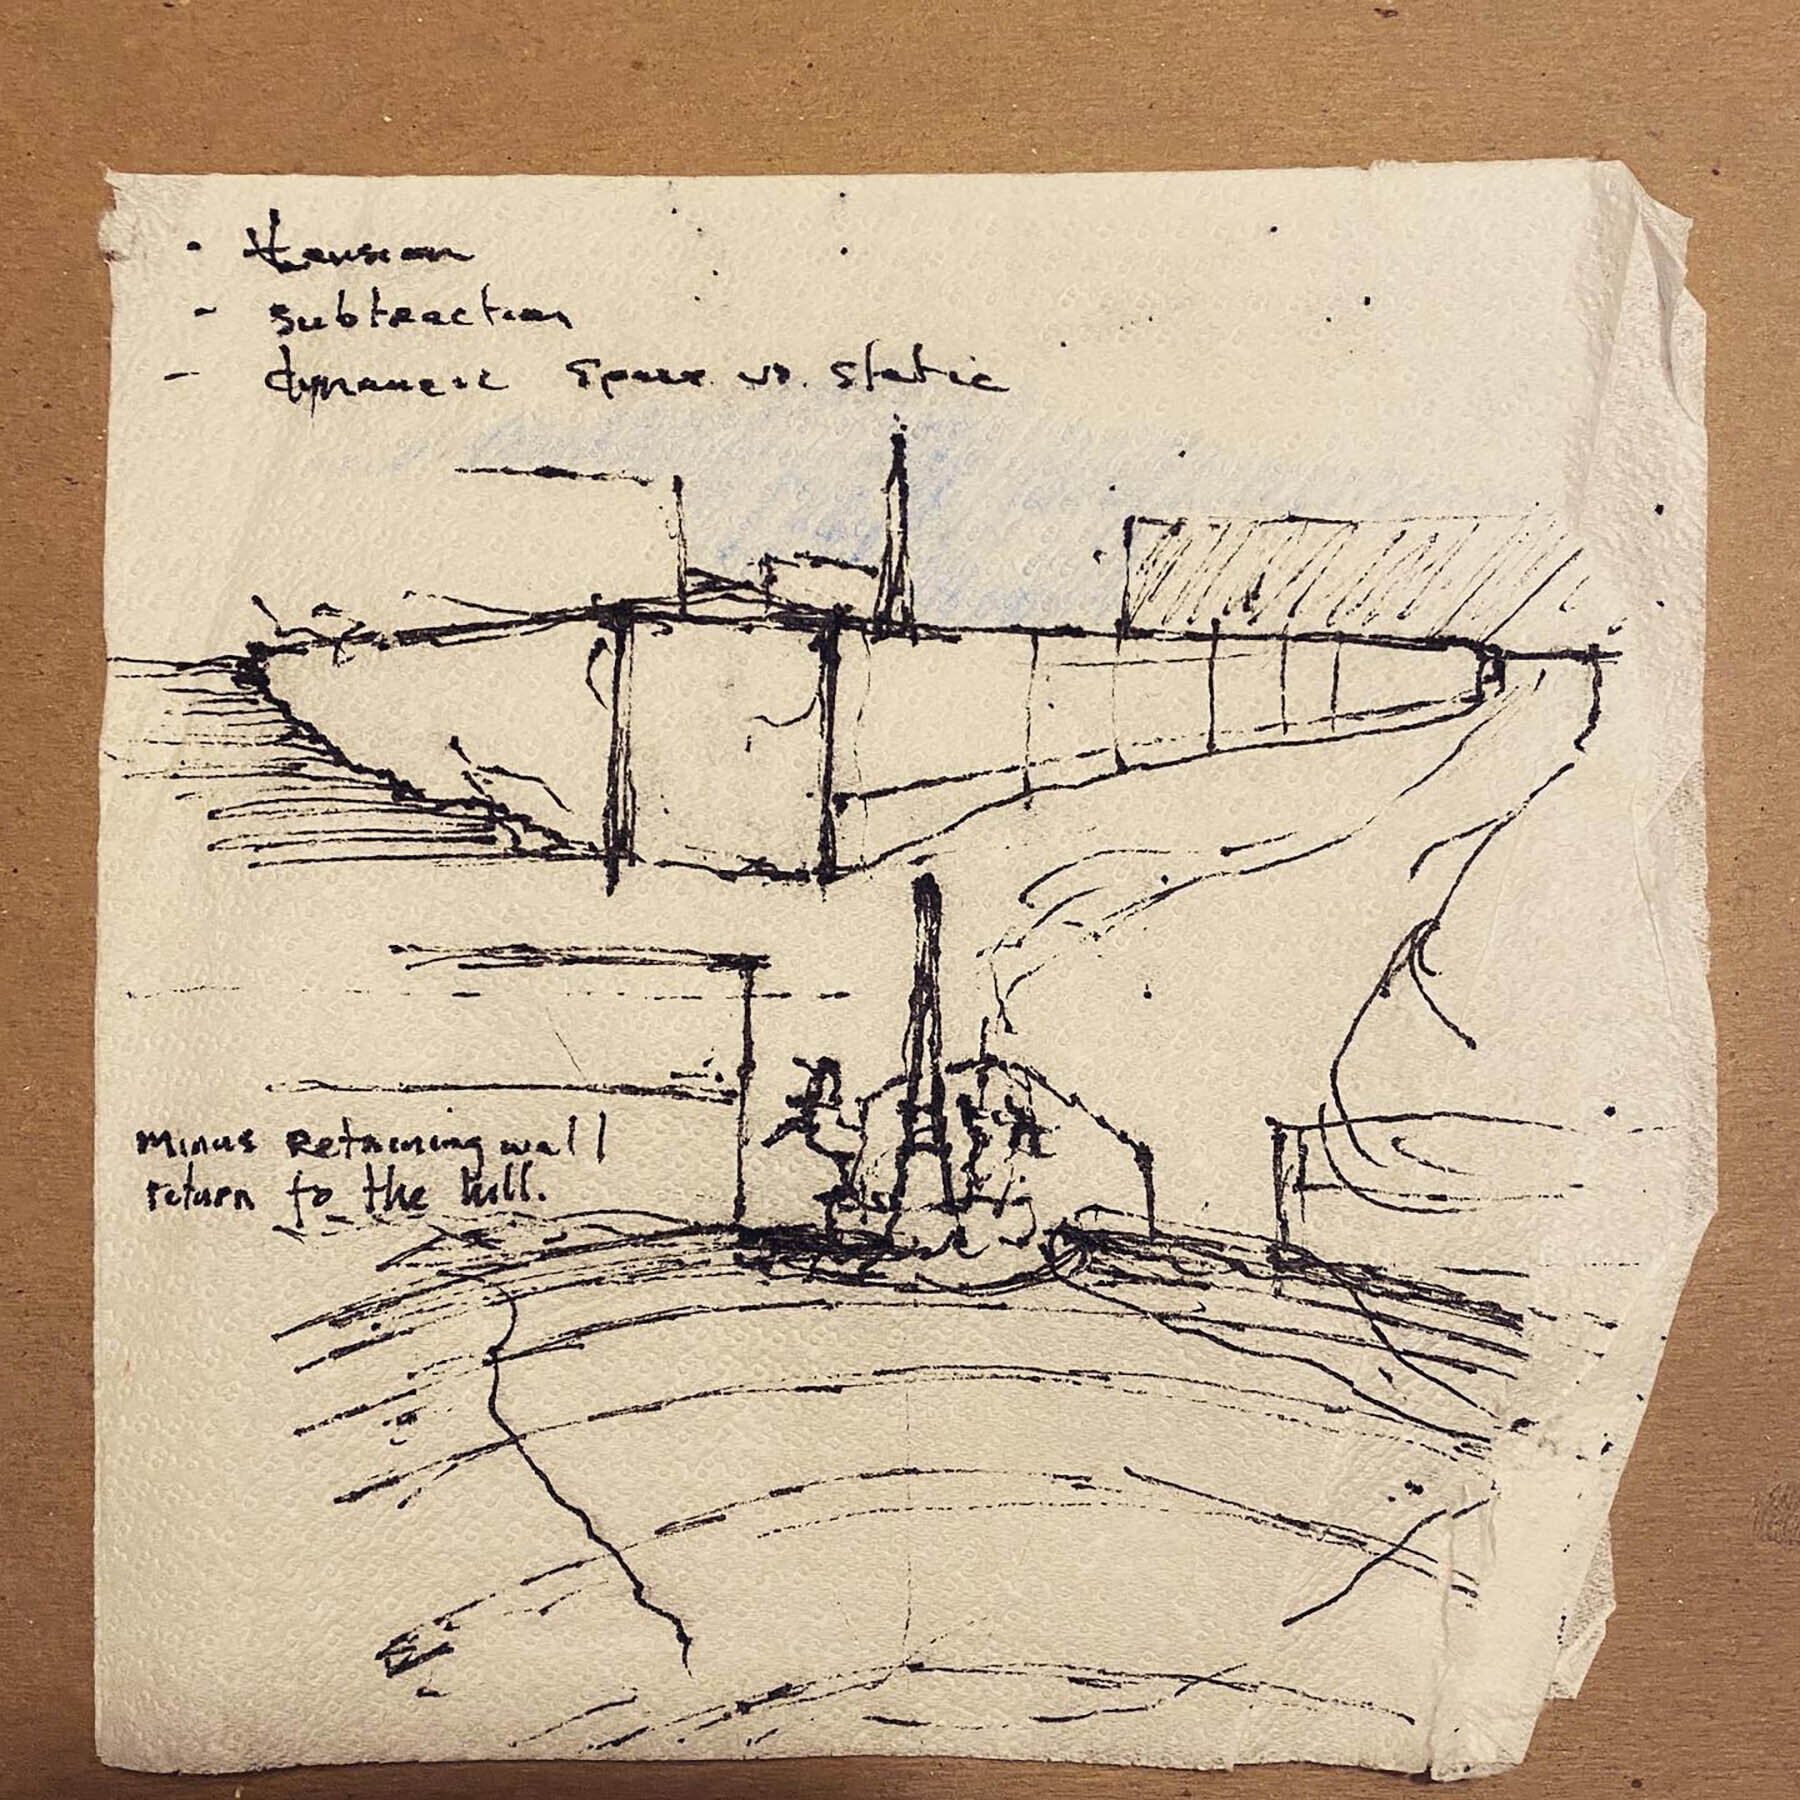 · tension
- subtraction
- dynamic space vs. static
minus retaining wall
return to the hill.